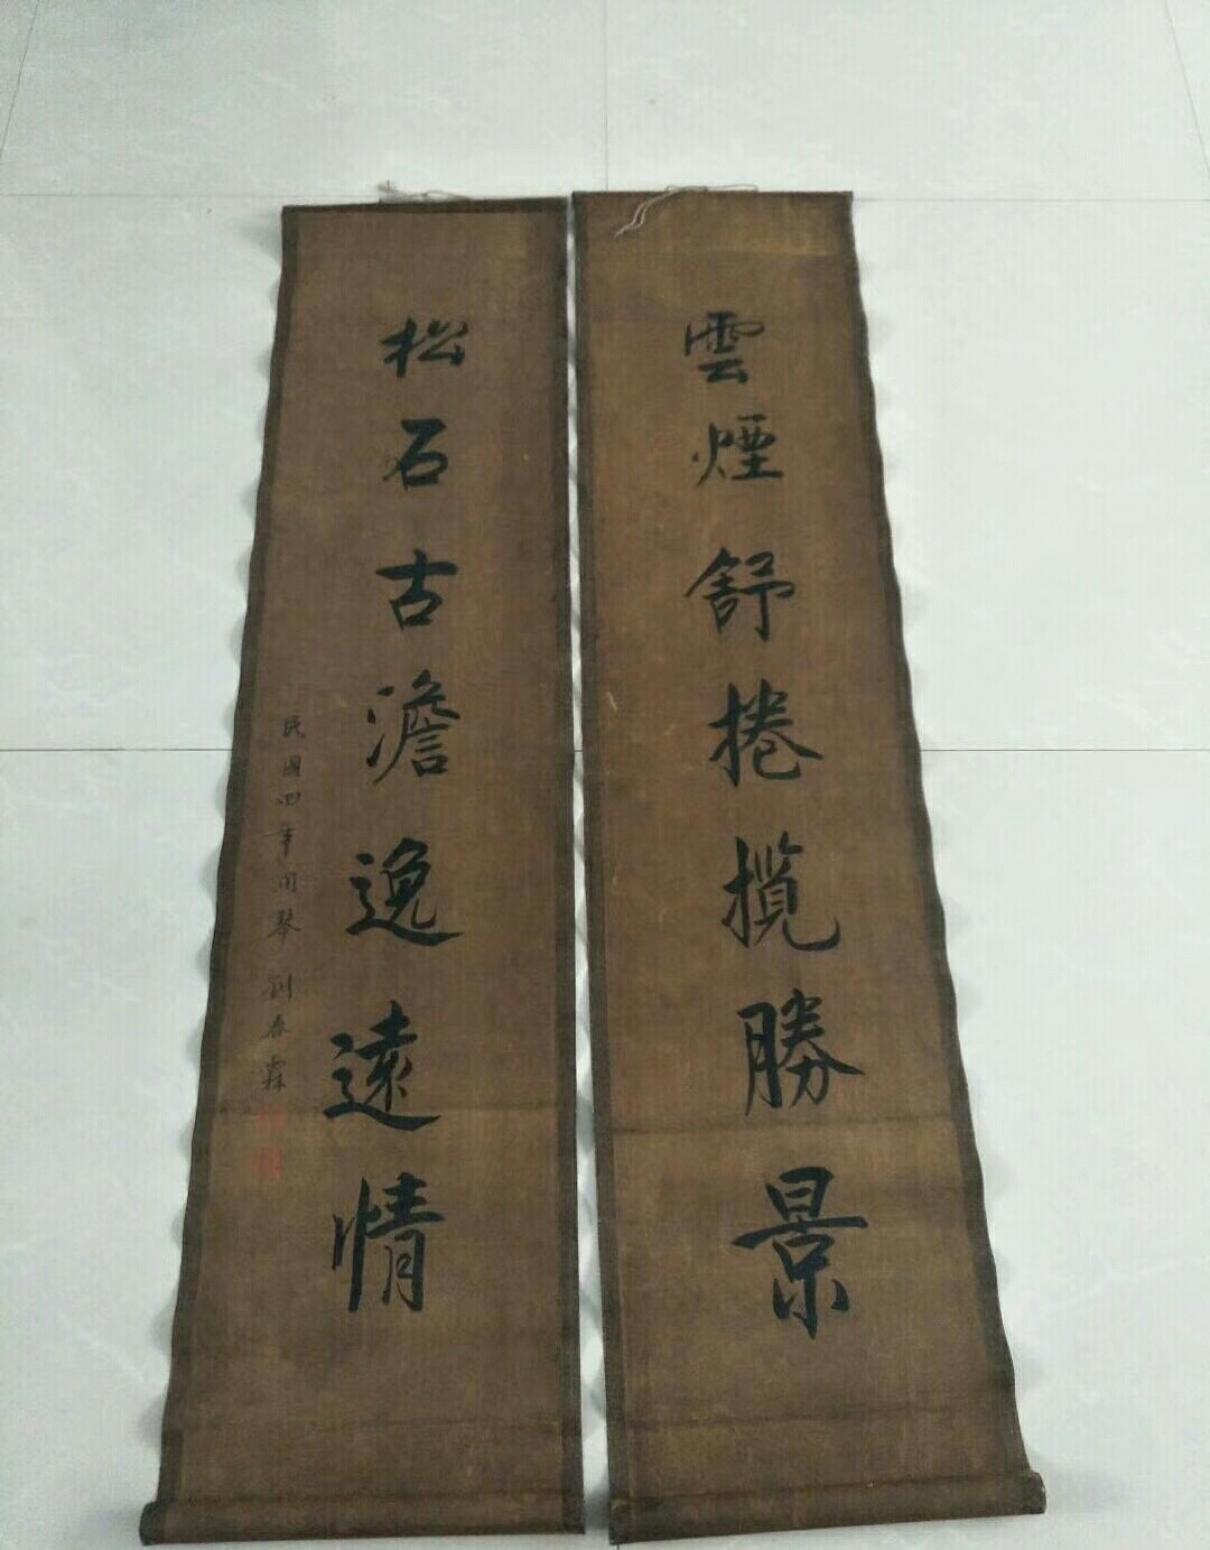 雲煙舒捲攬勝景
松石古澹逸遠情
民國四年润琴劉春霖